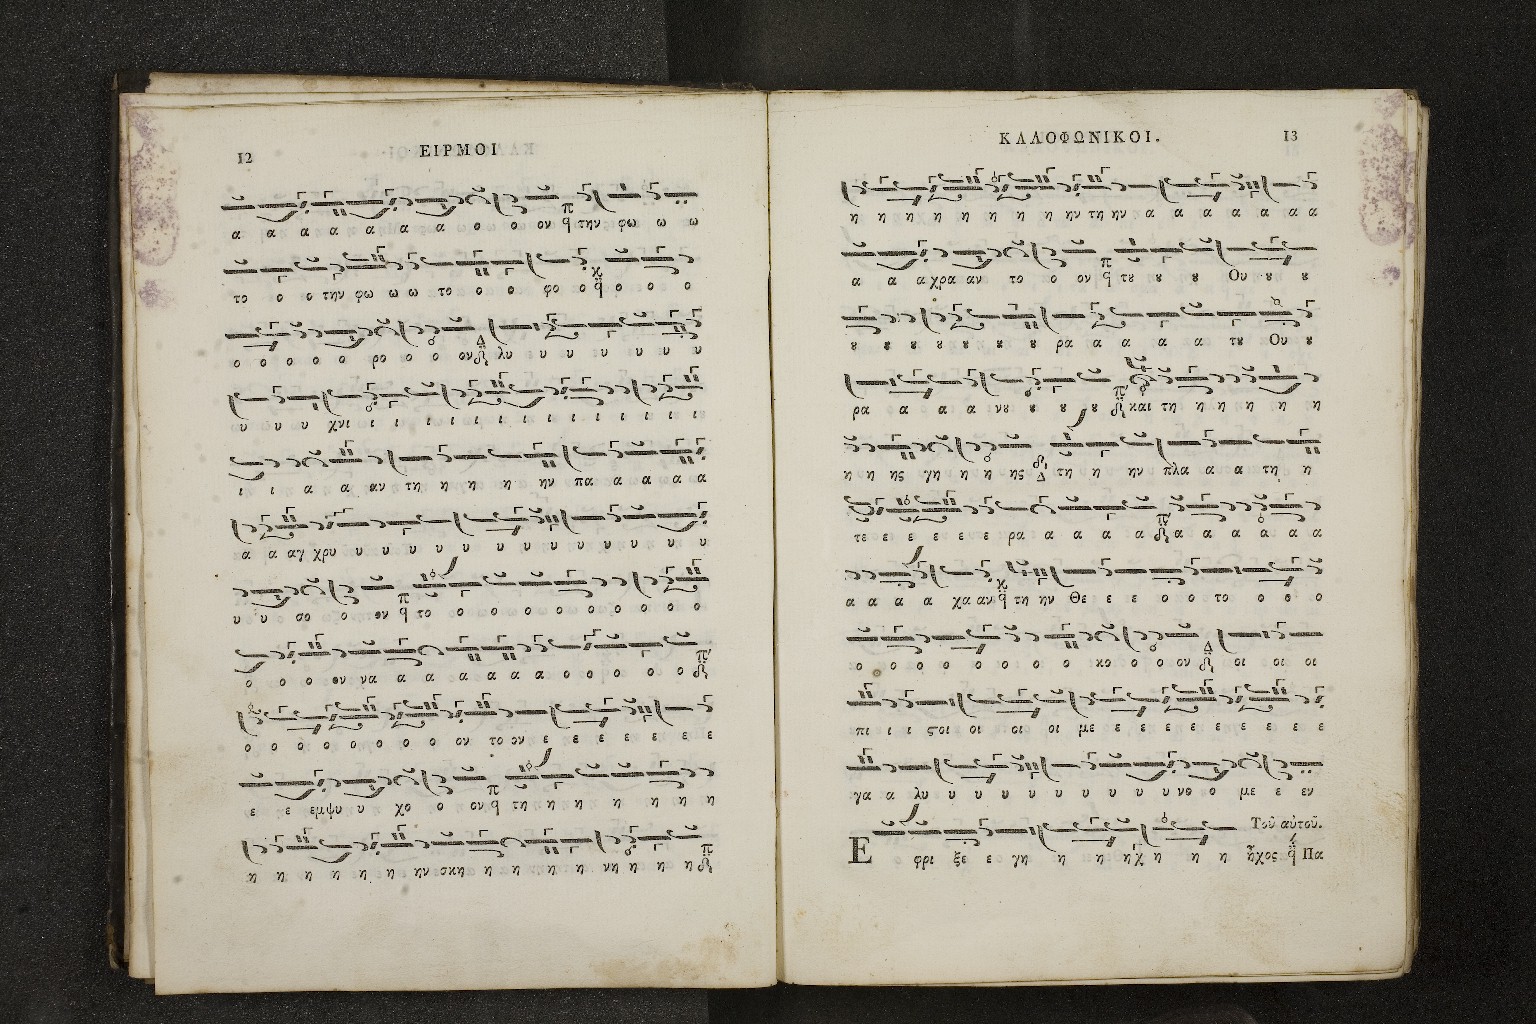 12
ΕΙΡΜΟΙ
α α α α α α α ο ο ον την φω ω ω
το ο ο την φω ω ω το ο ο φο ο ο ο ο
ο ο ο ο ο ρο ο ο ον λυ υ υ υ υ υ υ
υ υ υ χνι ι ι ι ι ι ι ι ι ι ι ι ι
ι ι α α αν τη η η η η ην πα α α α α
α α αγ χρυ υ υ υ υ υ υ υ υ υ υ υ υ υ
υ υ σο ο ον το ο ο ο ο ο ο ο ο ο ο
ο ο ο ον να α α α α α α ο ο ο ο ο
ο ο ο ο ο ο ο ο ον το ον ε ε ε ε ε ε ε
ε ε εμψυ υ χο ο ον τη η η η η η η η
η η η η η η ην σκη η η η η η νη η η η
ΚΑΛΟΦΩΝΙΚΟΙ.
13
η η η η η η η η ην τη ην α α α α α α α
α α α χρα αν το ο ον τȣ ȣ ȣ ȣ Ου ȣ ȣ
ȣ ȣ ȣ ȣ ȣ ȣ ȣ ρα α α α α τȣ Ου ȣ
ρα α α α α νȣ ȣ ȣ ȣ ȣ και τη η η η η η η
η η ης γη η η ης τη η ην πλα α α α τη η
τε ε ε ε ε ε ρα α α α α α α α α α α
α α α α χα αν τη ην Θε ε ε ο ο το ο ο ο
ο ο ο ο ο ο ο ο κο ο ο ον οι οι οι
πι ι ι ϛοι οι οι οι οι με ε ε ε ε ε ε ε ε ε
γα α λυ υ υ υ υ υ υ υ υ υ νο ο με ε εν
Τοῦ αὐτοῦ.
Ε φρι ξε ε γη η η ηχ η η η ἦχος Πα